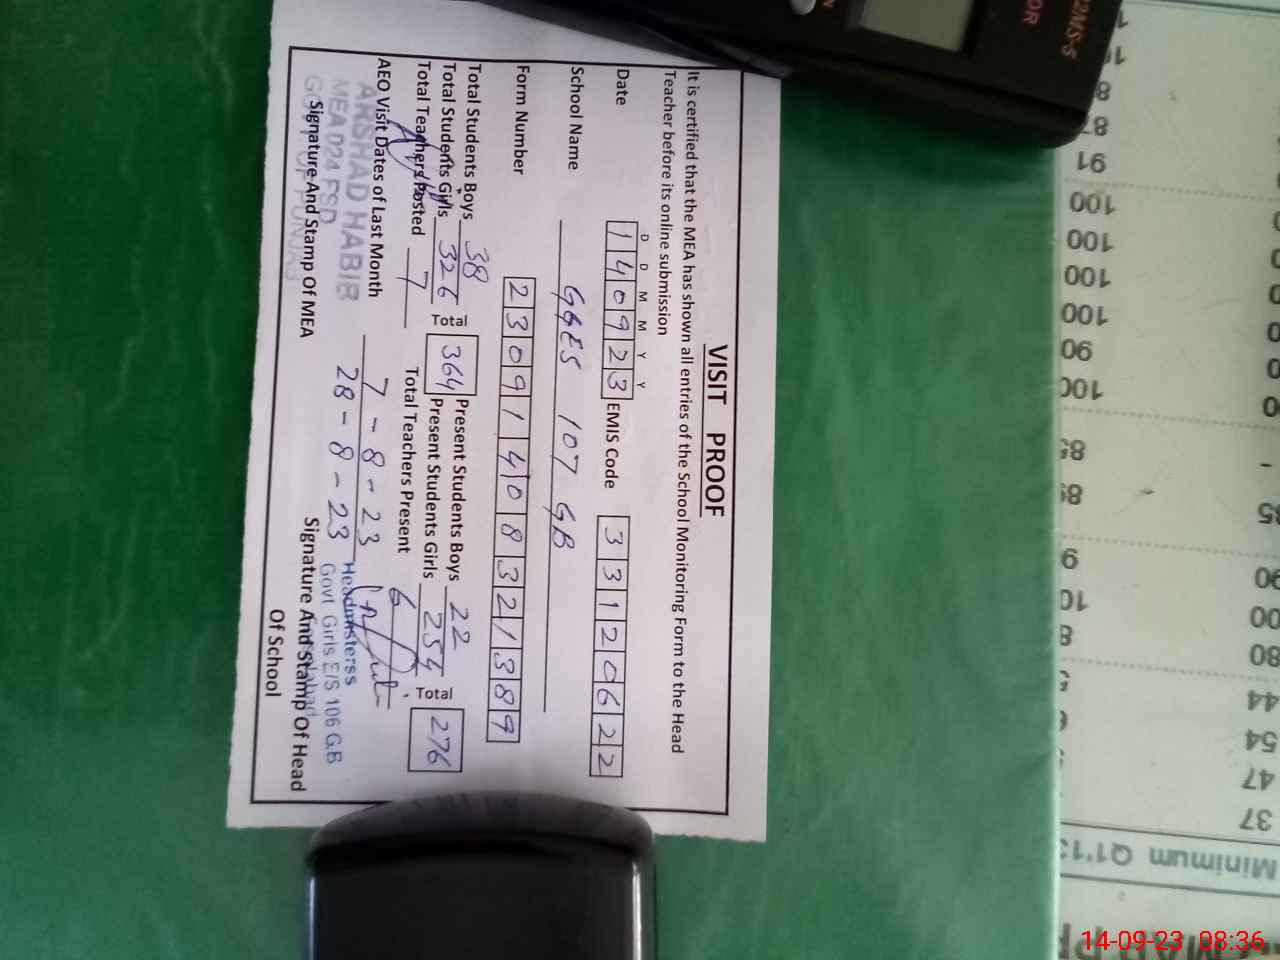 VISIT PROOF
It is certified that the MEA has shown all entries of the School Monitoring Form to the Head
Teacher before its online submission
D D M M Y Y
Date 140923 EMIS Code 33120622
School Name GGES 107 GB
Form Number 23091408321389
Total Students Boys 38 Present Students Boys 22
Total Students Girls 326 Total 364 Present Students Girls 254 Total 276
Total Teachers Posted 7 Total Teachers Present 6
AEO Visit Dates of Last Month 7-8-23
28-8-23
ARSHAD HABIB
MEA D24 FSD
GOVT OF PUNJAB
Signature And Stamp Of MEA
Headmisterss
Govt Girls E/S 106 GB
Signature And Stamp Of Head
Of School
2MS-5
OR
N
87
91
100
100
100
100
90
100
80
44
54
47
37
Minimum Q1'1
14-09-23 08:36